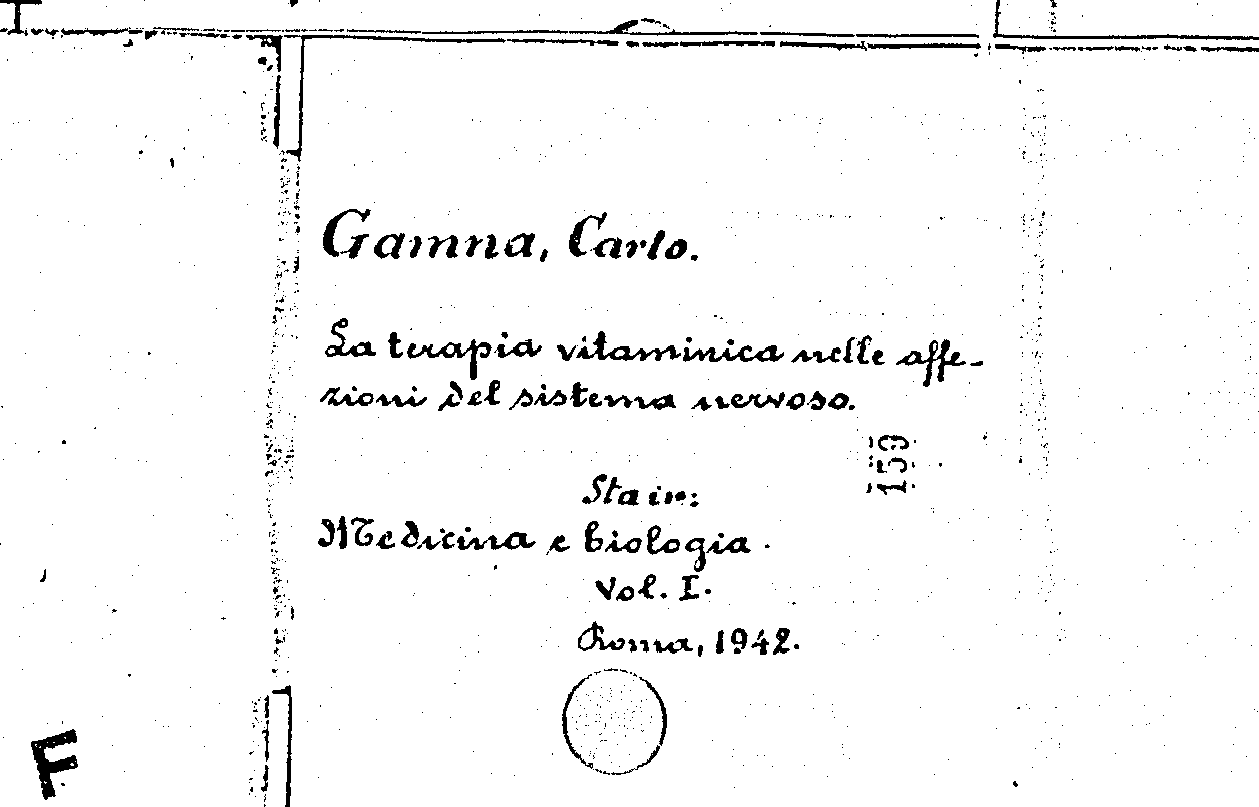 Gamna, Carlo.
La terapia vitaminica nelle affe-
zioni del sistema nervoso.
159
Sta in:
Medicina e biologia.
Vol. I.
Roma, 1942.
F